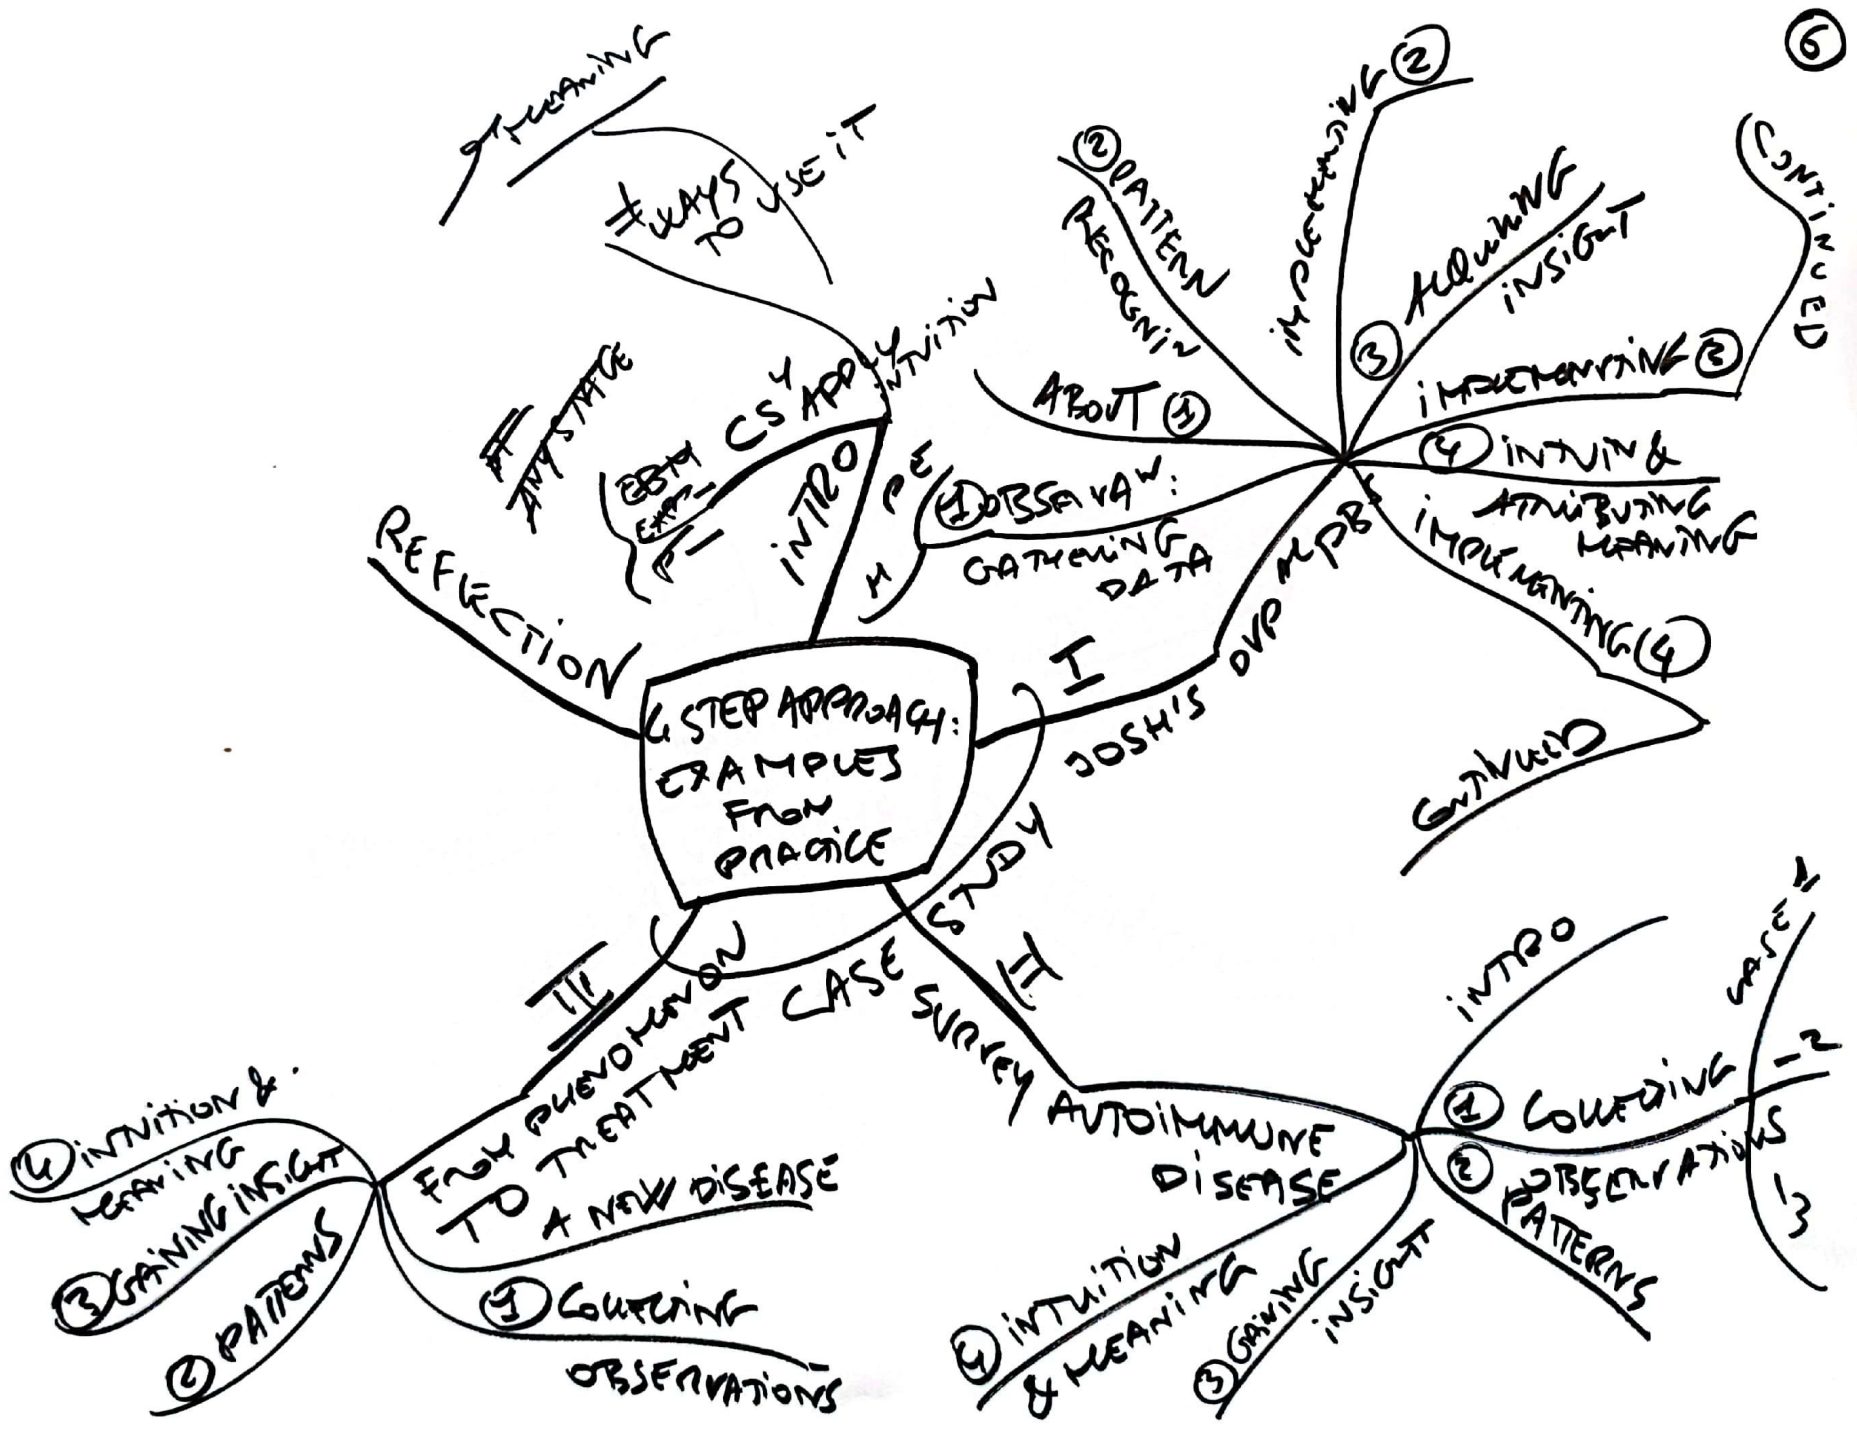 6
4 STEP APPROACH:
EXAMPLES
FROM
PRACTICE
REFLECTION
INTRO
CS
4 APPLY
INTUITION
EBM
EXP
AT
ANY STAGE
# WAYS
TO USE IT
MEANING
H PE
I
JOSH'S DVP
ABOUT 1
1 OBSERVA W:
GATHERING
DATA
2 PATTERN
RECOGNI
IMPLEMENTING 2
3 ACQUIRING
INSIGHT
IMPLEMENTING 3
CONTINUED
4 INTUIN &
ATTRIBUTING
MEANING
IMPLEMENTING 4
CONTINUED
CASE STUDY
II
SURVEY AUTOIMMUNE
DISEASE
INTRO
1 COLLECTING
OBSERVATIONS
CASE 1
-2
3
2 PATTERNS
3 GAINING
INSIGHT
4 INTUITION
& MEANING
III
FROM PHENOMENON
TO TREATMENT
A NEW DISEASE
1 COLLECTING
OBSERVATIONS
2 PATTERNS
3 GAINING INSIGHT
4 INTUITION &
MEANING